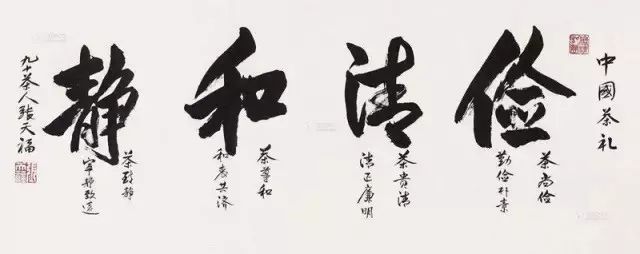 中國茶礼
俭
茶尚俭
勤俭朴素
清
茶貴清
清正廉明
和
茶尊和
和衷共济
静
茶致静
宁静致远
九十茶人張天福